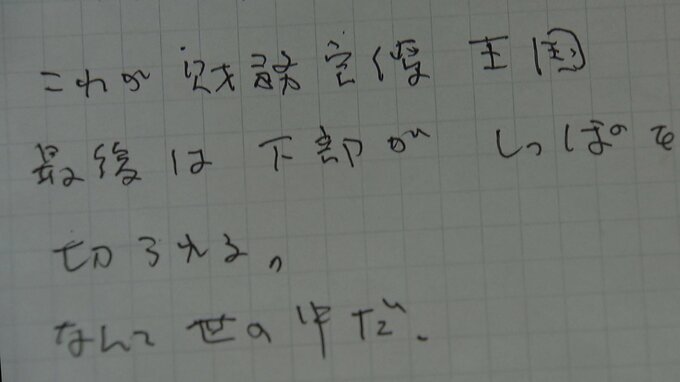 これが 財務官僚 王国
最後は 下部が しっぽを
切られる。
なんて 世の中だ。